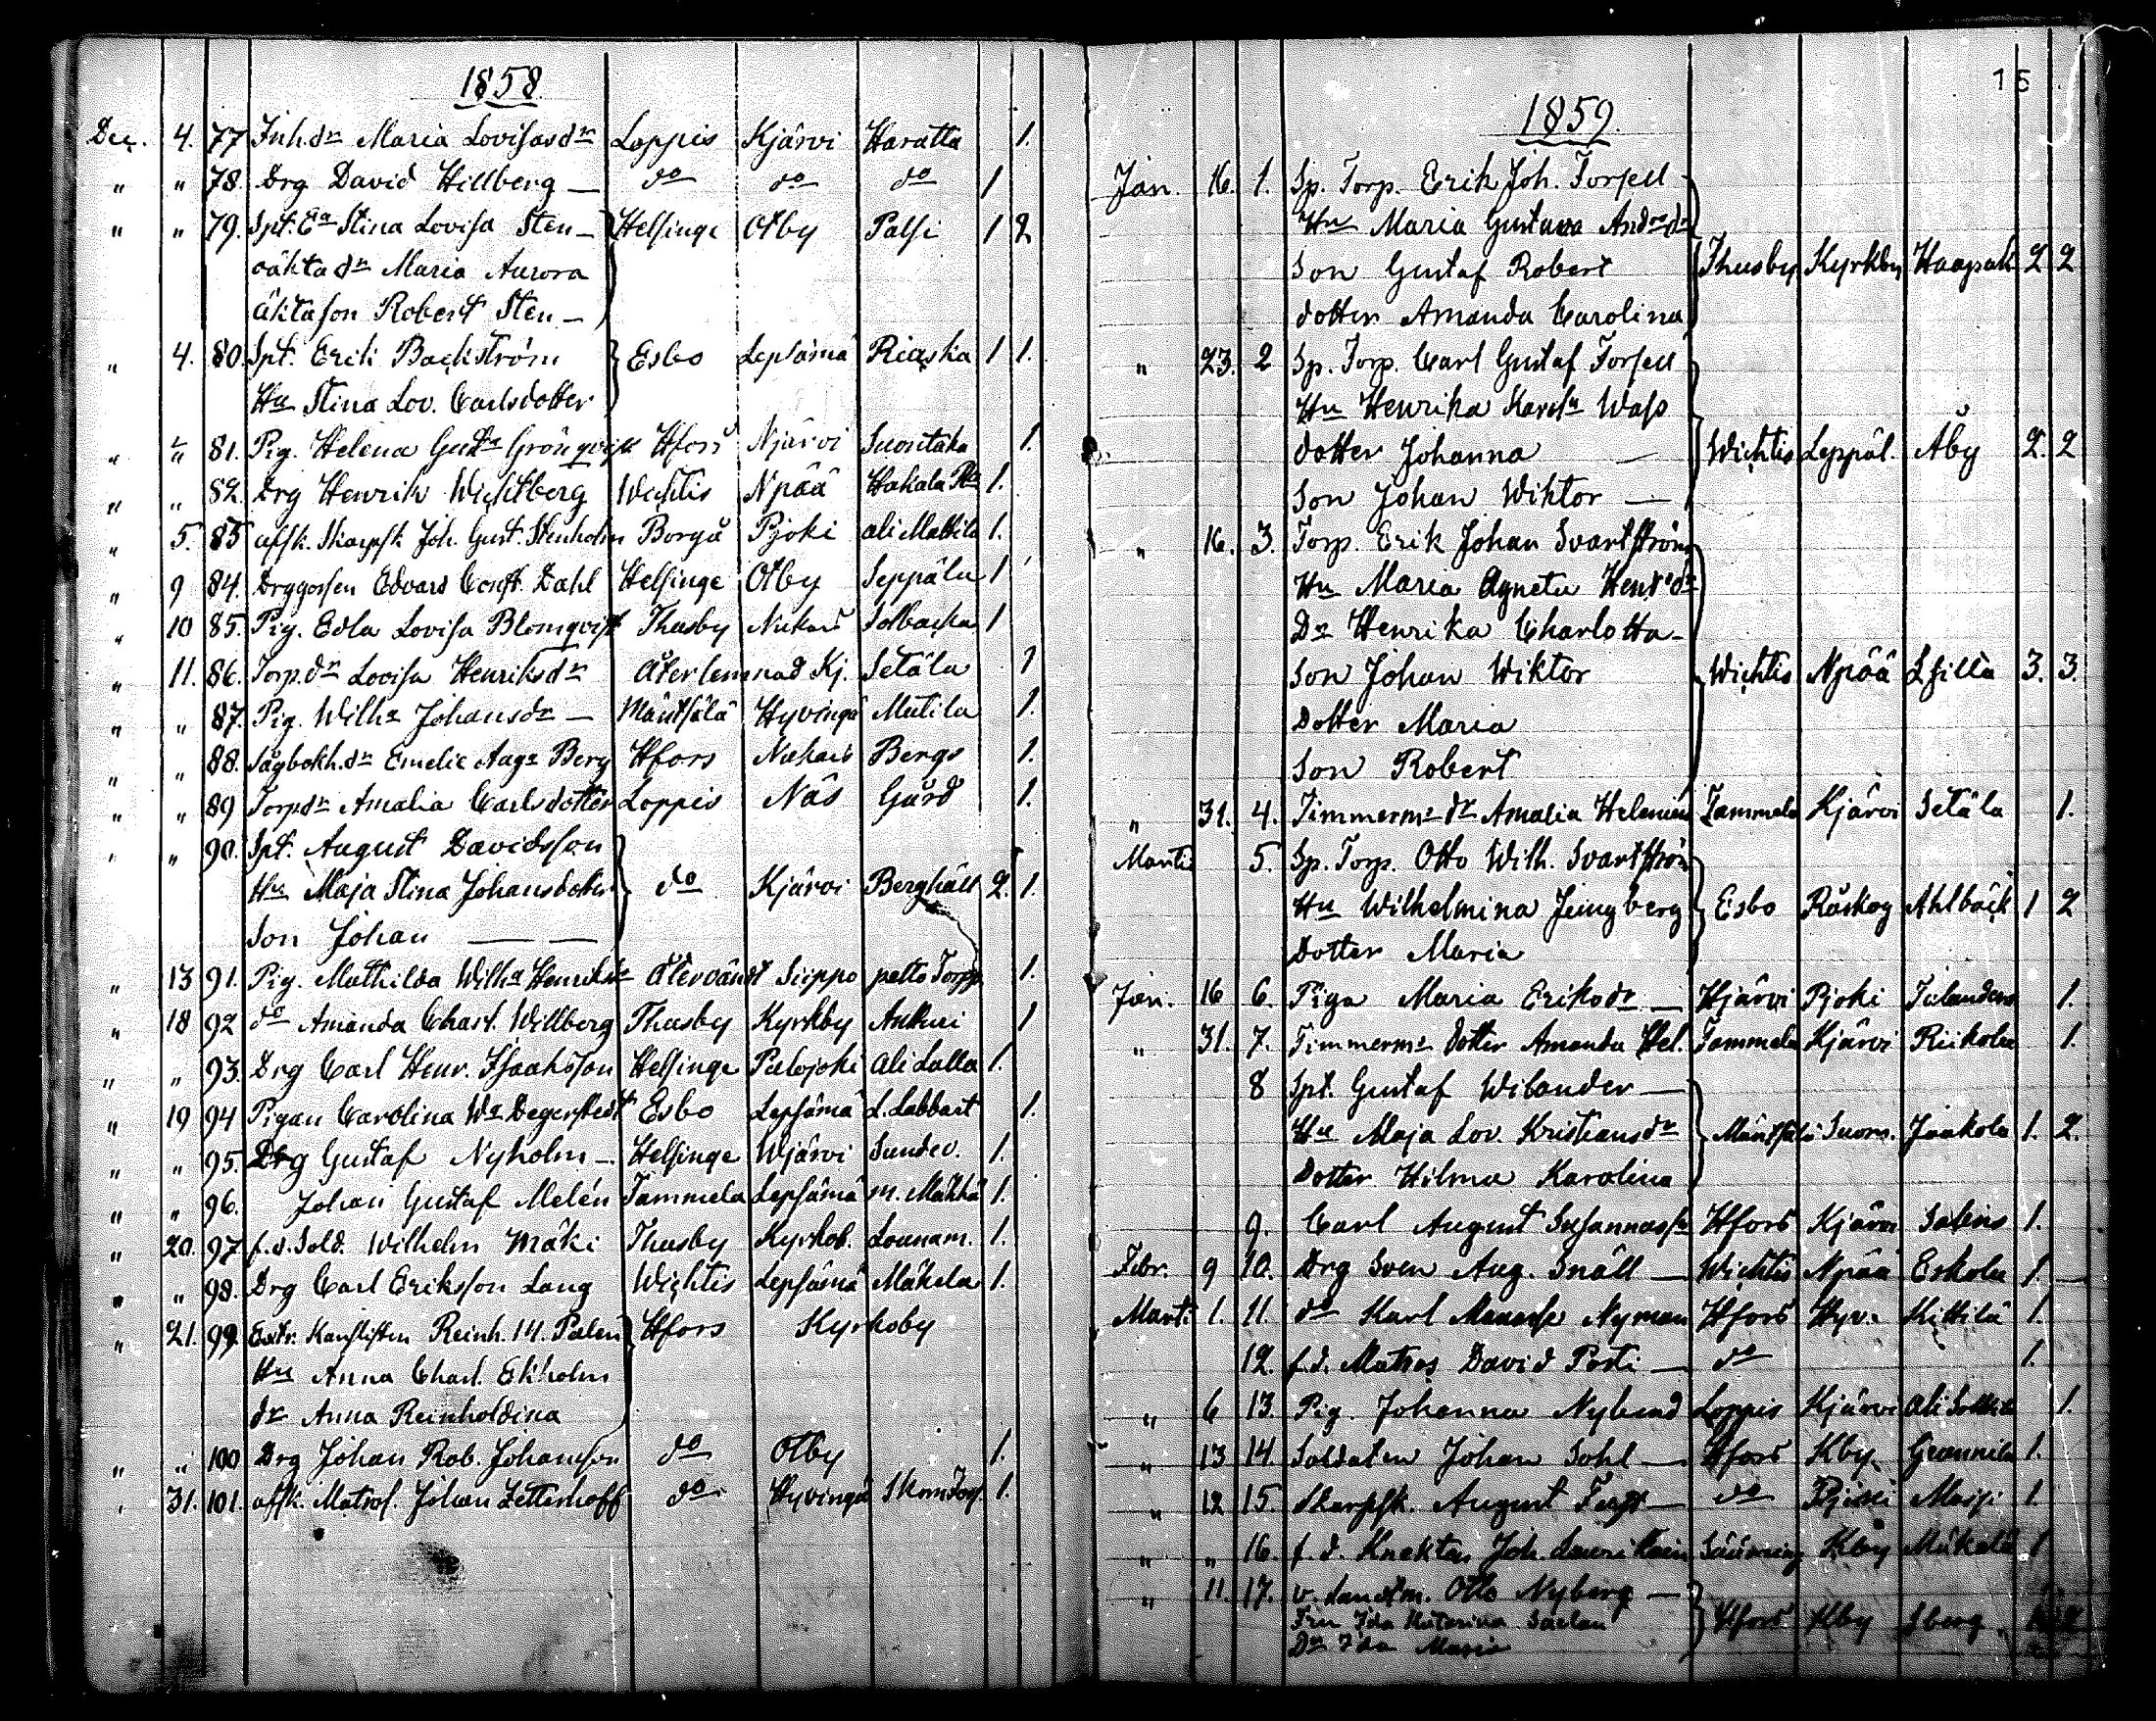 1858
Dec. 4. 77 Inh.dr Maria Lovisasdr Loppis Kjärvi Haratta 1.
" " 78. Drg David Hillberg — do do do 1
" " 79. Spt. Ea Stina Lovisa Sten — Helsinge Otby Palsi 1 2
oäkta dr Maria Aurora
äkta son Robert Sten —
" 4. 80. Spt. Erik Backström Esbo Lepsämä 1 1.
Hu Stina Lov. Carlsdotter
" " 81. Pig. Helena Grönqvist Hfors Njärvi Suontaka 1.
" " 82. Drg Henrik Wichtberg Wichtis Npää Hakala 1.
" 5. 83 afsk. Skarpsk Joh. Gust. Stenholm Borgå Pjoki ali Mattila 1.
" 9 84. Drggossen Edvard Const. Dahl Helsinge Otby Seppälä 1
" 10 85. Pig. Edla Lovisa Blomqvist Thusby Nukars Solbacka 1
" 11. 86. Torp.dr Lovisa Henriksdr Återlemnad Kj. Setäla 1
" " 87. Pig. Wilha Johansdr — Mäntsälä Hyvingä Mutila 1.
" " 88. Sågbokh.dr Emelie Auga Berg Hfors Nukars Bergs 1.
" " 89 Torpdr Amalia Carlsdotter Loppis Näs Gård 1.
" " 90. Spt. August Davidsson
Hu Maja Stina Johansdotter do Kjärvi Berghäll 2. 1.
Son Johan — —
" 13 91. Pig. Mathilda Wilha Henriksdr Återvändt Siippo pelto Torpp 1.
" 18 92 do Amanda Charl. Willberg Thusby Kyrkby Antturi 1
" " 93. Drg Carl Henr. Isaaksson Helsinge Palojoki Ali Lalla 1.
" 19 94 Pigan Carolina Wa Degerstedt Esbo Lepsämä L. Labbart 1.
" " 95. Drg Gustaf Nyholm — Helsinge Wjärvi Sundev. 1.
" " 96. Johan Gustaf Melén Tammela Lepsämä m. 1.
" 20. 97. f.d. Sold. Wilhelm Mäki Thusby Kyrkob. Lounam. 1.
" " 98. Drg Carl Eriksson Lang Wichtis Lepsämä Mäkela 1.
" 21. 99. Extr. Kanslisten Reinh. Palen Hfors Kyrkoby
Hu Anna Charl. Ekholm
dr Anna Reinholdina
" " 100 Drg Johan Rob. Johansson do Otby 1.
" 31. 101. afsk. Matros. Johan Zetterhoff do Hyvingä Skom Torp. 1.
15
1859.
Jan. 16. 1. Sp. Torp. Erik Joh. Forsell
Hu Maria Gustava Andrsdr
Son Gustaf Robert Thusby Kyrkby Haapak 2 2
dotter Amanda Carolina
" 23. 2 Sp. Torp. Carl Gustaf Forsell
Hu Henrika Wass
dotter Johanna — Wichtis Leppäl. Åby 2. 2
Son Johan Wiktor —
" 16. 3. Torp. Erik Johan Svartström
Hu Maria Agneta Henrsdr
Dr Henrika Charlotta —
Son Johan Wiktor Wichtis Npää 3. 3.
Dotter Maria
Son Robert
" 31. 4. Timmerms dr Amalia Tammela Kjärvi Setäla 1.
Marti 5. Sp. Torp. Otto Wilh. Svartström
Hu Wilhelmina Ljungberg Esbo Röskog Ahlbäck 1 2
Dotter Maria
Jan. 16 6. Piga Maria Eriksdr — Hjärvi Pjoki 1.
" 31. 7. Timmerms dotter Amanda Hel. Tammela Kjärvi Riikola 1.
8 Spt. Gustaf Wilander —
Hu Maja Lov. Kristiansdr Mäntsälä Suom. Jaakola 1. 2.
Dotter Hilma Karolina
9. Carl August Susannass Hfors Kjärvi 1.
Febr. 9 10. Drg Sven Aug. Snäll — Wichtis Npää Eskola 1. —
Marti 1. 11. do Karl Manasse Nyman Hfors Hyv. Kittilä 1.
12. f.d. Matros David Posti — do 1.
" 6 13. Pig. Johanna Nylund Loppis Kjärvi Ali 1.
" 13 14. Soldaten Johan Sohl — Hfors Kby Grannila 1.
" 12 15. Skarpsk. August — do 1.
" " 16. f.d. Knekten Joh. Kby Mäkelä 1
" 11. 17. v. Landtm. Otto Nyberg —
Fru Ida Katarina Hfors Kby
Dr Ida Maria